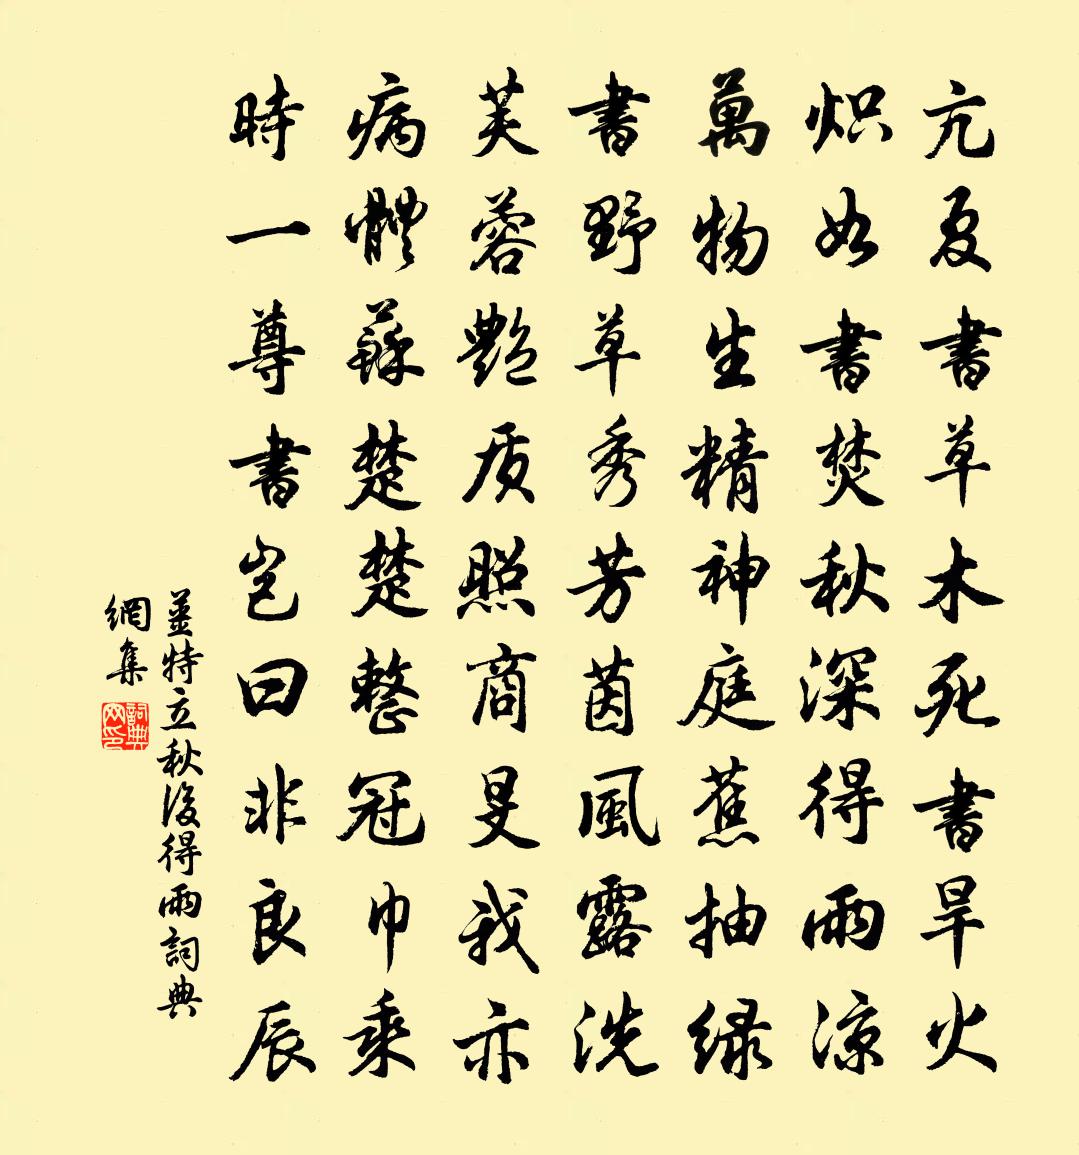 亢夏書草木死書旱火
炽如書焚秋深得雨凉
萬物生精神庭蕉抽绿
書野草秀芳茵風露洗
芙蓉艷质照商旻我亦
病體蘇楚楚整冠巾乘
時一尊書岂曰非良辰
薑特立秋後得雨詞典
網集
詞典
网